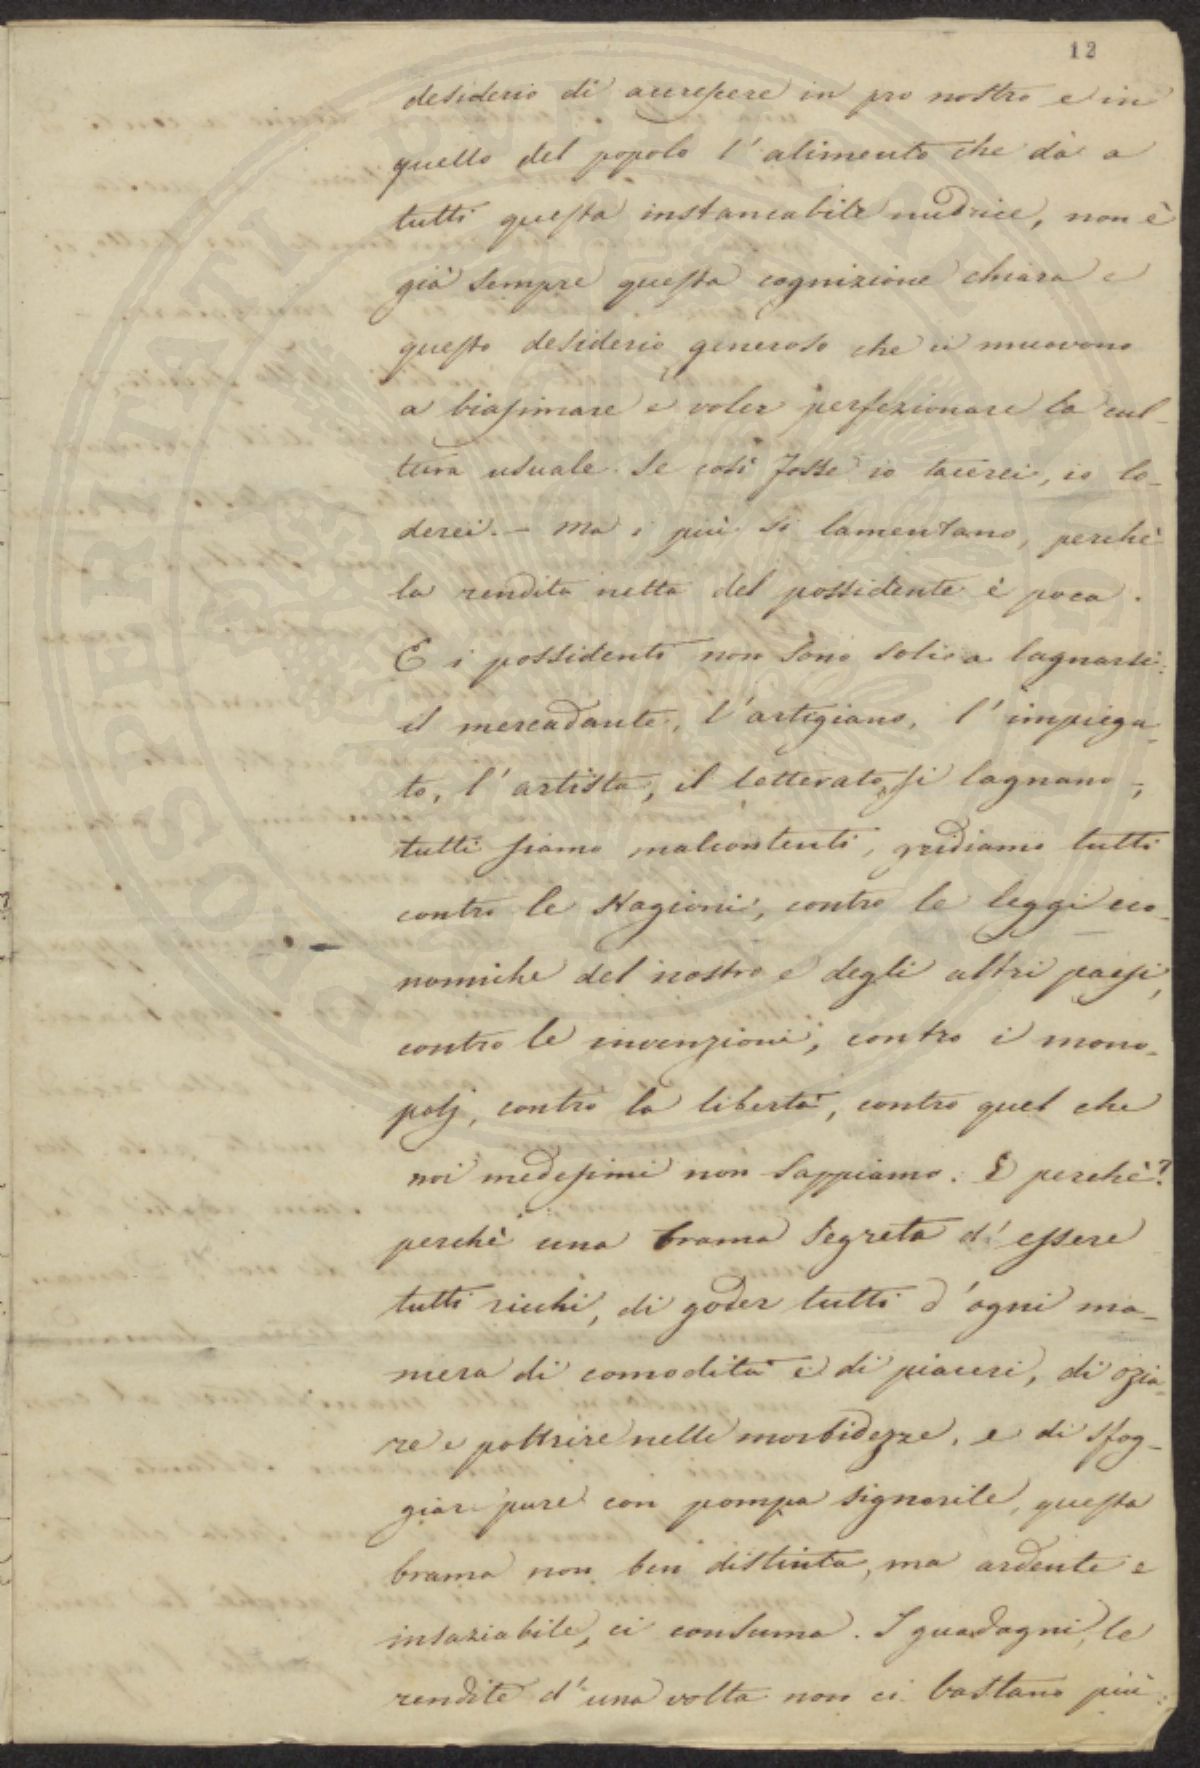 12
desiderio di accrescere in pro nostro e in
quello del popolo l'alimento che dà a
tutti questa instancabile nudrice, non è
già sempre questa cognizione chiara e
questo desiderio generoso che ci muovono
a biasimare e voler perfezionare la cul-
tura usuale. Se così fosse io tacerei, io lo-
derei. - Ma i più si lamentano, perchè
la rendita netta del possidente è poca.
E i possidenti non sono soli a lagnarsi:
il mercadante, l'artigiano, l'impiega-
to, l'artista, il letterato si lagnano;
tutti siamo malcontenti, gridiamo tutti
contro le stagioni, contro le leggi eco-
nomiche del nostro e degli altri paesi,
contro le invenzioni, contro i mono-
polj, contro la libertà, contro quel che
noi medesimi non sappiamo. E perchè?
perchè una brama segreta d'essere
tutti ricchi, di goder tutti d'ogni ma-
niera di comodità e di piaceri, di ozia-
re e poltrire nelle morbidezze, e di sfog-
giar pure con pompa signorile, questa
brama non ben distinta, ma ardente e
insaziabile, ci consuma. I guadagni, le
rendite d'una volta non ci bastano più: